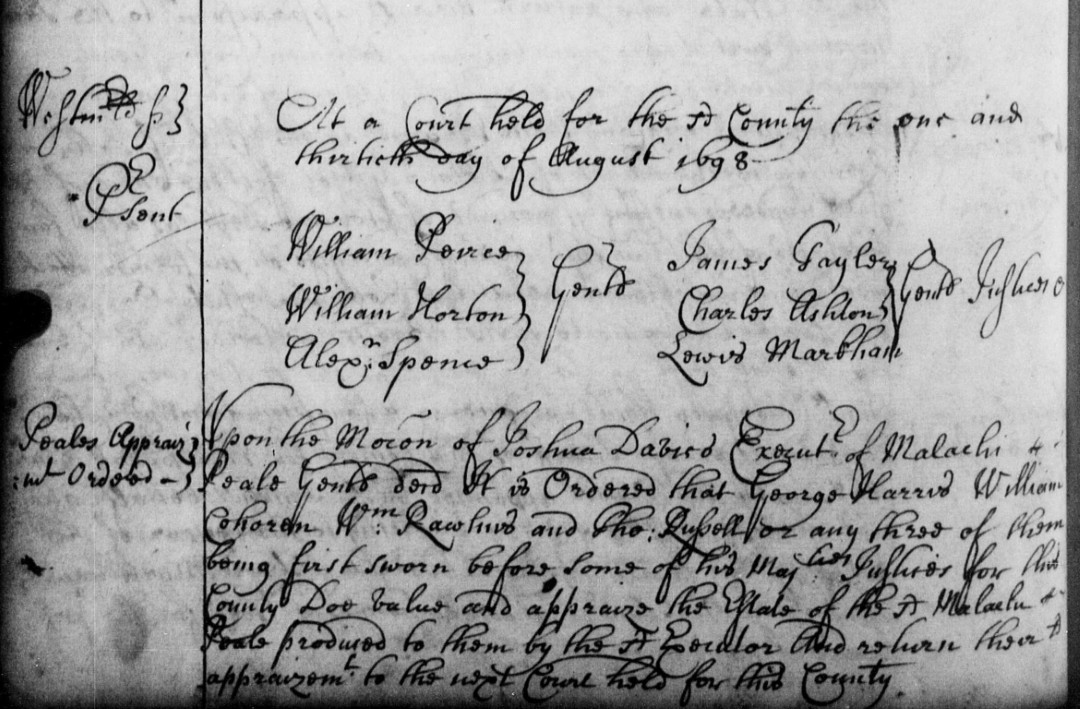 Westmorld ss}
At a Court held for the sd County the one and
thirtieth day of August 1698
Psent
William Peirce
William Horton
Alexr: Spence
} Gents
James Tayler
Charles Ashton
Lewis Markham
} Gents Justices
Peales Appraiz
:mt Ordered -}
Upon the Mocon of Joshua Davies Execut:r of Malachi
Peale Gent decd It is Ordered that George Harris William
Cohoren Wm: Rawlins and Tho: Russell or any three of them
being first sworn before some of his Majties Justices for this
County Doe value and appraize the Estate of the sd Malachi
Peale produced to them by the sd Executor And return their
appraizemt to the next Court held for this County